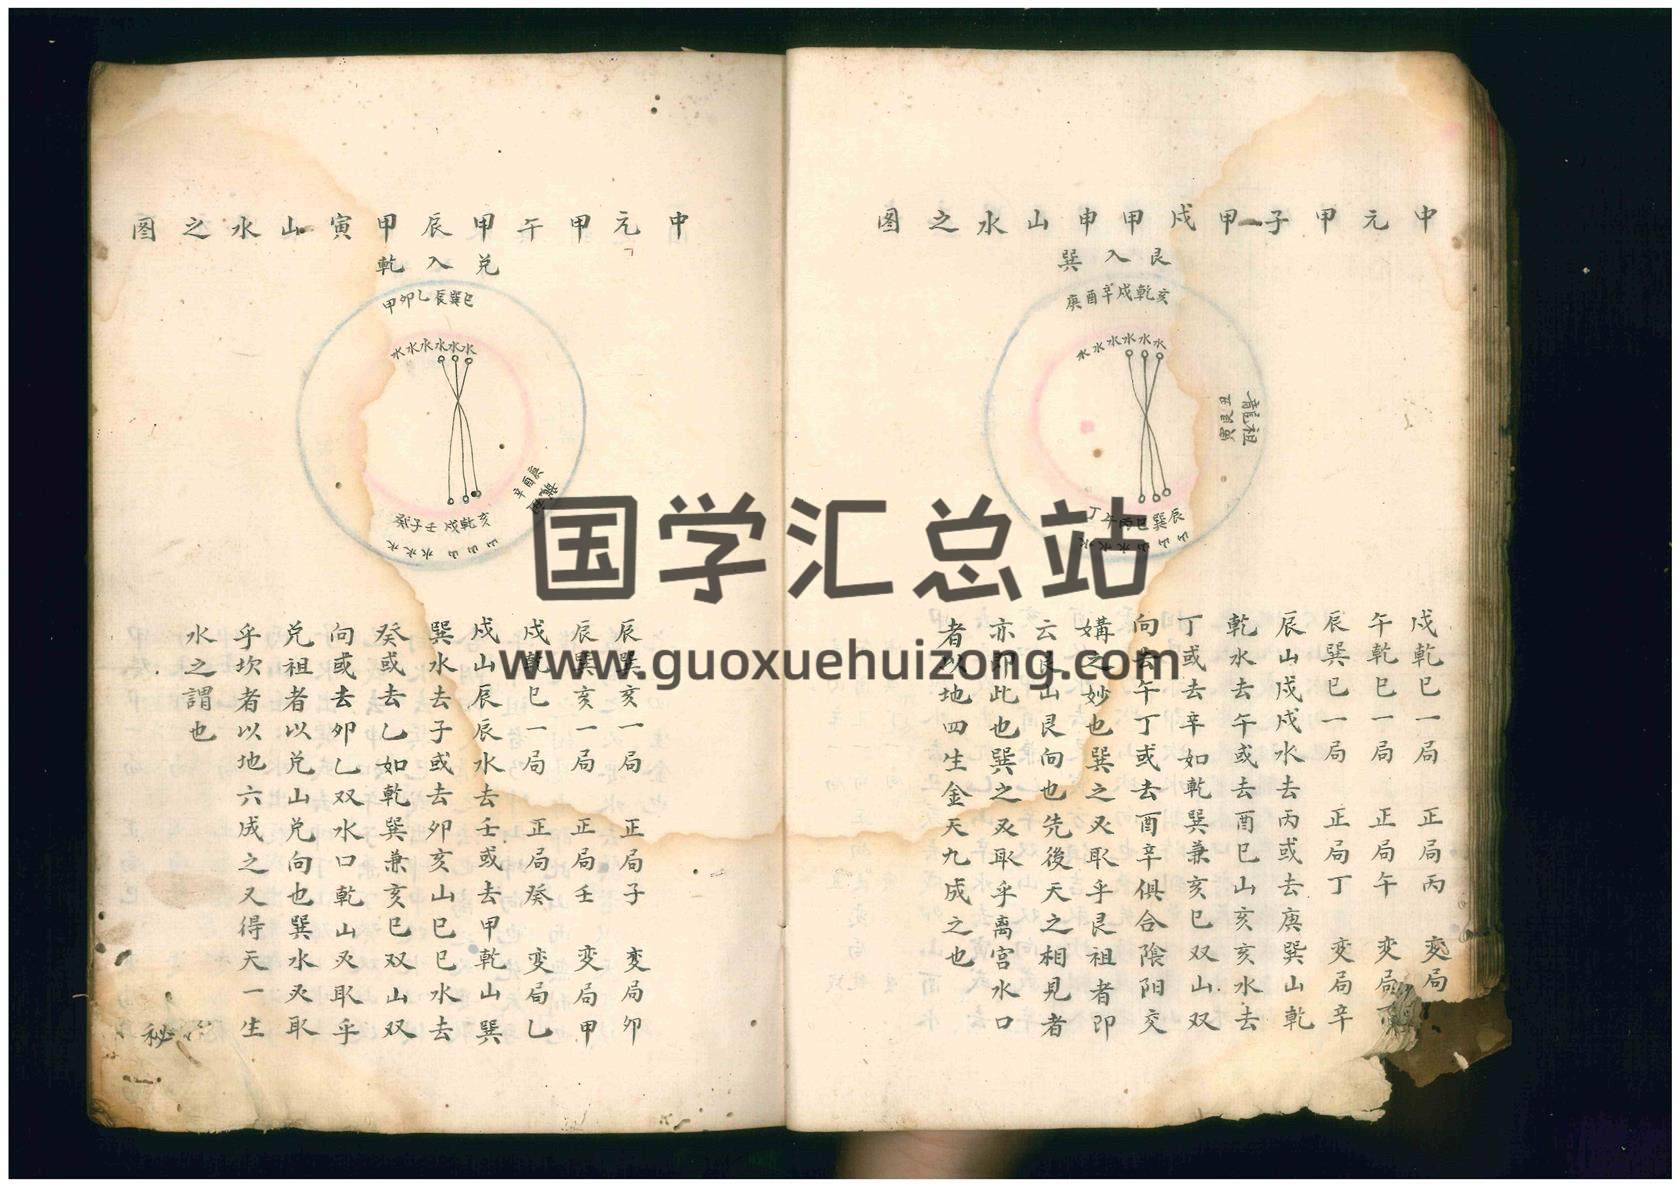 中元甲子甲戌甲申山水之图
艮入巽
庚酉辛戌乾亥
水水水水水水
龍祖
丑艮寅
丁午丙巳巽辰
水水水水山山山
戌乾巳一局 正局丙 变局
午乾巳一局 正局午 变局
辰巽巳一局 正局丁 变局辛
辰山戌戌水去丙或去庚巽山乾
乾水去午或去酉巳山亥亥水去
丁或去辛如乾巽兼亥巳双山双
向去午丁或去酉辛俱合陰阳交
媾之妙也巽之又取乎艮祖者即
云艮山艮向也先後天之相見者
亦即此也巽之又取乎离宫水口
者以地四生金天九成之也
中元甲午甲辰甲寅山水之图
兑入乾
甲卯乙辰巽巳
水水水水水水
辛酉庚
癸子壬戌乾亥
水水水水山山山
辰巽亥一局 正局子 变局卯
辰巽亥一局 正局壬 变局甲
戌乾巳一局 正局癸 变局乙
戌山辰辰水去壬或去甲乾山巽
巽水去子或去卯亥山巳巳水去
癸或去乙如乾巽兼亥巳双山双
向或去卯乙双水口乾山又取乎
兑祖者以兑山兑向也巽水又取
乎坎者以地六成之又得天一生
水之謂也
秘
国学汇总站
www.guoxuehuizong.com